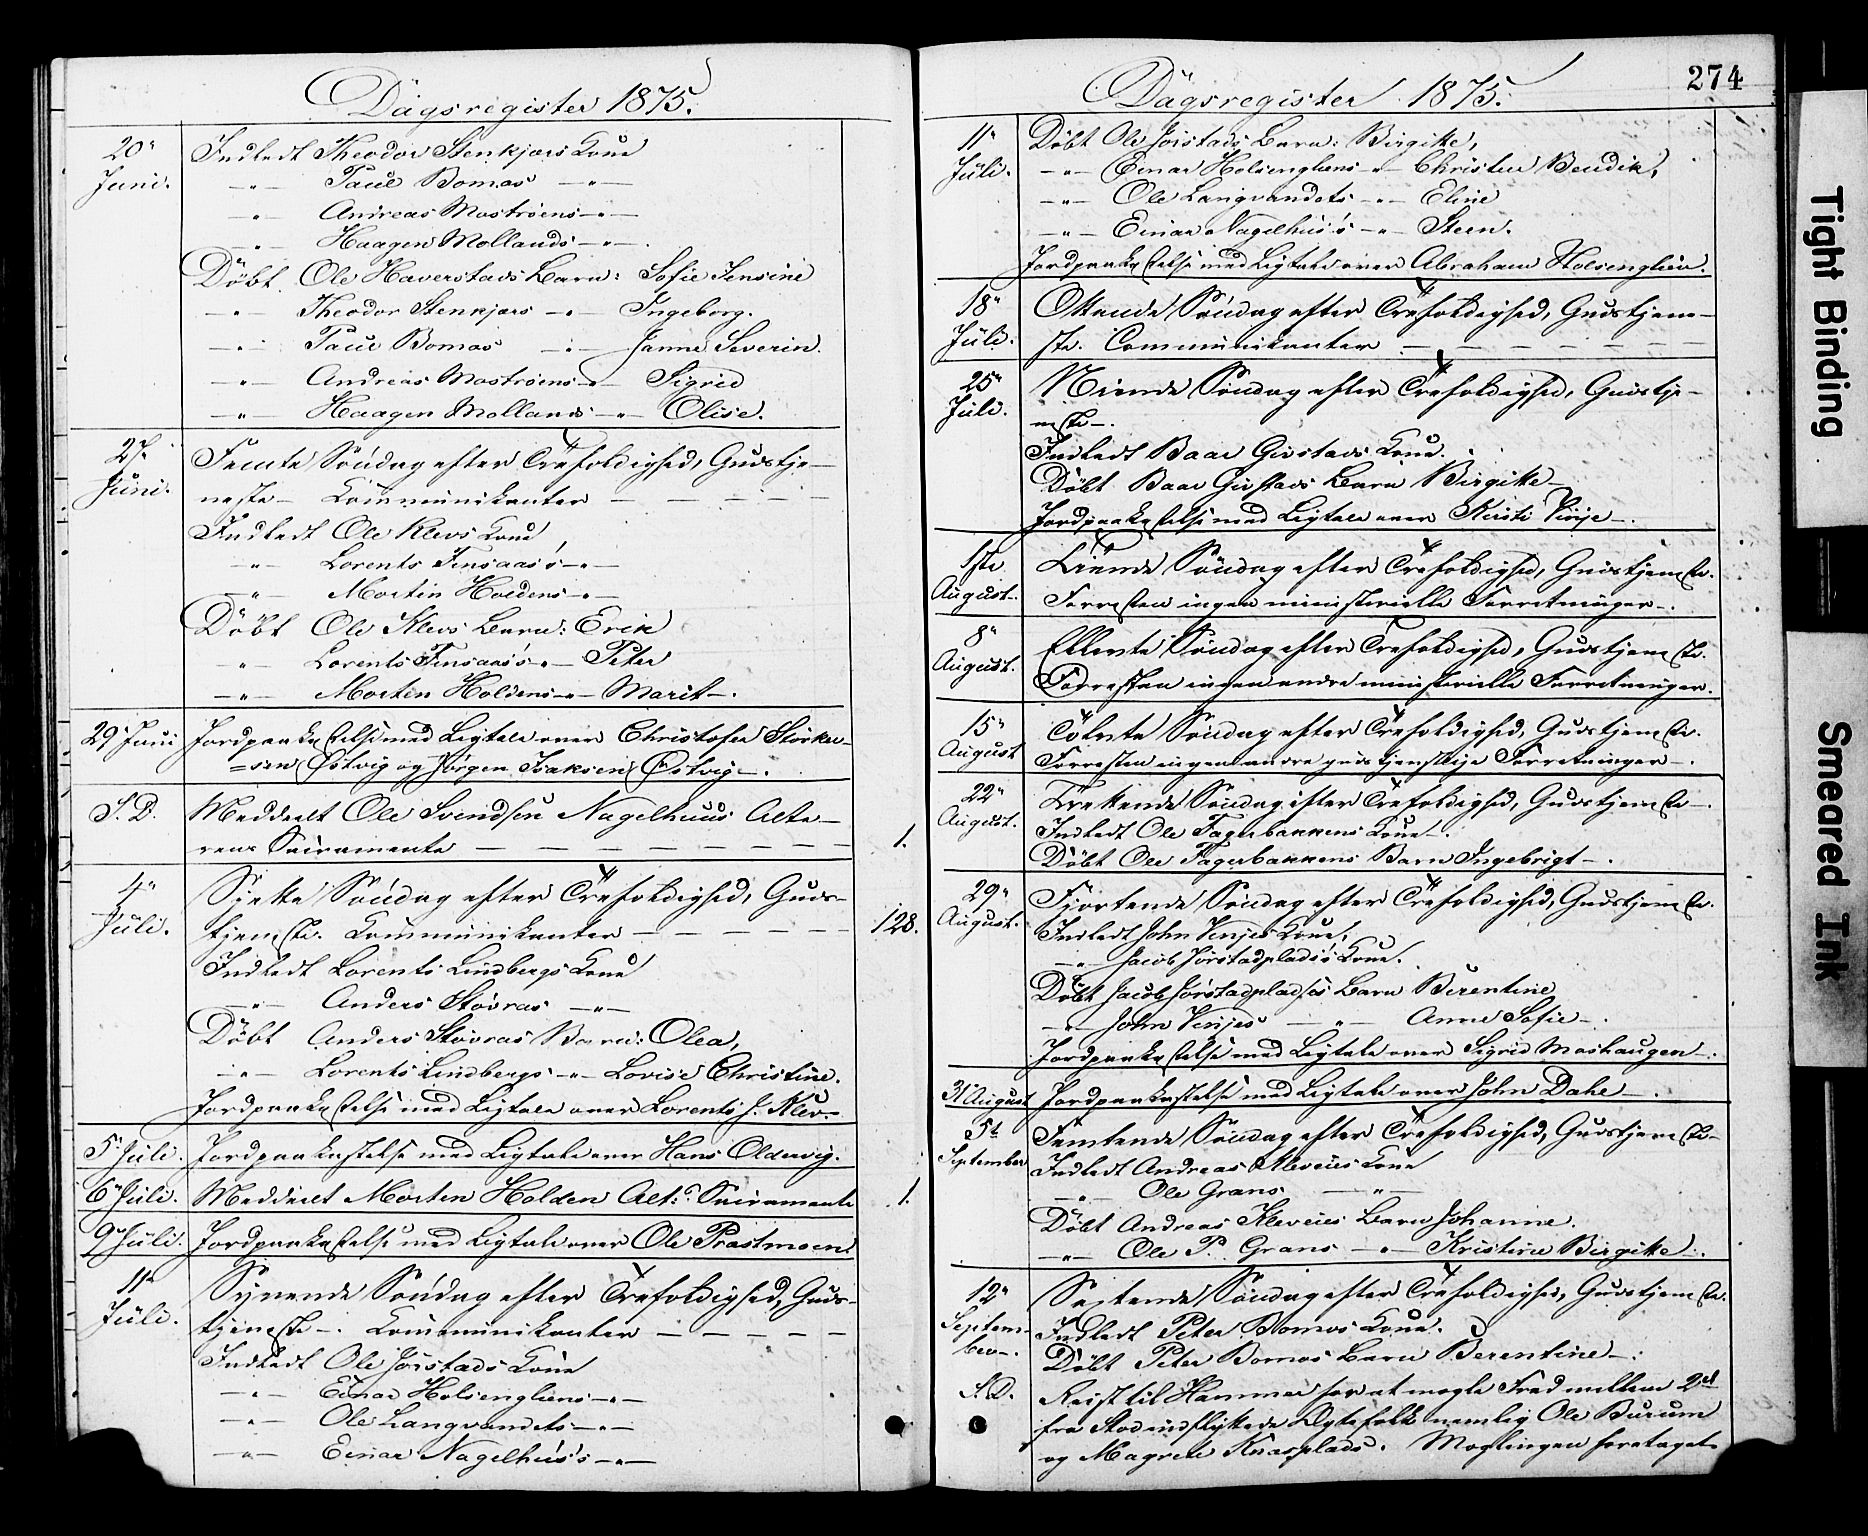 Dagsregister 1875.
20" Juni. Indledt Theodor Stenkjærs Kone
-"- Paul Bomos -"-
-"- Andreas Mostrøens -"-
-"- Haagen Mollands -"-
Döbt. Ole Haverstads Barn: Sofie Jensine
-"- Theodor Stenkjærs -"- Ingeborg.
-"- Paul Bomos -"- Janna Severin.
-"- Andreas Mostrøens -"- Sigrid
-"- Haagen Mollands -"- Olise.
27" Juni. Femte Søndag efter Trefoldighed, Gudstje-
neste - Kommunikanter - - - -
Indledt Ole Klevs Kone,
-"- Lorents Finsaas's -"-
-"- Mortin Holdens -"-
Döbt Ole Klevs Barn: Erik
-"- Lorents Finsaas's -"- Peter
-"- Morten Holdens -"- Marit -.
29 Juni Jordpaakastelse med Ligtale over Christofer Størker-
=sen Østvig og Jørgen Isaksen Østvig -.
S. D. Meddelt Ole Svendsen Nagelhuus Alte-
rens Sacramente - - - - - - - 1.
4" Juli. Sjette Søndag efter Trefoldighed, Guds-
tjeneste. Kommunikanter - - - - - 128.
Indledt Lorents Lindbergs Kone
-"- Anders Støvras -"-
Döbt Anders Støvras Barn: Olea,
-"- Lorents Lindbergs -"- Lovise Christine.
Jordpaakastelse med Ligtale over Lorents J. Klev -
5" Juli. Jordpaakastelse med Ligtale over Hans Oldervig.
6" Juli. Meddelt Morten Holden Alt: Sacramente 1.
9" Juli. Jordpaakastelse med Ligtale over Ole Præstmoen.
11" Juli. Syvende Søndag efter Trefoldighed, Guds-
tjeneste -. Kommunikanter - - - - -
Indledt Ole Jørstads Kone
-"- Einar Holsengliens -"-
-"- Ole Langvandets -"-
-"- Einar Nagelhus's -"-
274
Dagsregister 1875.
11" Juli. Döbt Ole Jørstads Barn: Birgitte,
-"- Einar Holsengliens -"- Christen Bendik,
-"- Ole Langvandets -"- Eline
-"- Einar Nagelhus's -"- Steen.
Jordpaakastelse med Ligtale over Abraham Holsenglien.
18" Juli. Ottende Søndag efter Trefoldighed, Gudstjene-
ste. Communikanter - - - - - -
25" Juli. Niende Søndag efter Trefoldighed, Gudstje-
neste -.
Indledt Baar Gistads Kone.
Döbt Baar Gistads Barn Birgitte -
Jordpaakastelse med Ligtale over Kirsti Vinje -.
1ste August. Tiende Søndag efter Trefoldighed, Gudstjeneste.
Forresten ingen ministerielle Forretninger -.
8" August. Ellevte Søndag efter Trefoldighed, Gudstjeneste.
Forresten ingen andre ministerielle Forretninger.
15" August Tolvte Søndag efter Trefoldighed, Gudstjeneste.
Forresten ingen andre gudstjenstlige Forretninger -.
22" August. Trettende Søndag efter Trefoldighed, Gudstjeneste -.
Indledt Ole Fagerbakkens Kone -.
Döbt Ole Fagerbakkens Barn Ingebrigt -.
29" August. Fjortende Søndag efter Trefoldighed, Gudstjeneste.
Indledt John Vinjes Kone,
-"- Jacob Jørstadplads's Kone.
Döbt Jacob Jørstadplads's Barn Berentine
-"- John Vinjes -"- Anne Sofie -.
Jordpaakastelse med Ligtale over Sigrid Moshaugen -.
31 August Jordpaakastelse med Ligtale over John Dahl -.
5t September Femtende Søndag efter Trefoldighed, Gudstjeneste -
Indledt Andreas Kleveies Kone
-"- Ole Grans -"-
Döbt Andreas Kleveies Barn Johanne.
-"- Ole P. Grans -"- Kristine Birgitte -.
12" Septem-
ber -. Sextende Søndag efter Trefoldighed, Gudstjeneste.
Indledt Peter Bomos Kone.
Döbt Peter Bomos Barn Berentine -.
S. D. Reist til Hammer for at mægle Fred mellem 2de
fra Stod indflyttede Ægtefolk nemlig Ole Burum
og Magrete Kvasplads. Mæglingen foretaget
Tight Binding
Smeared Ink